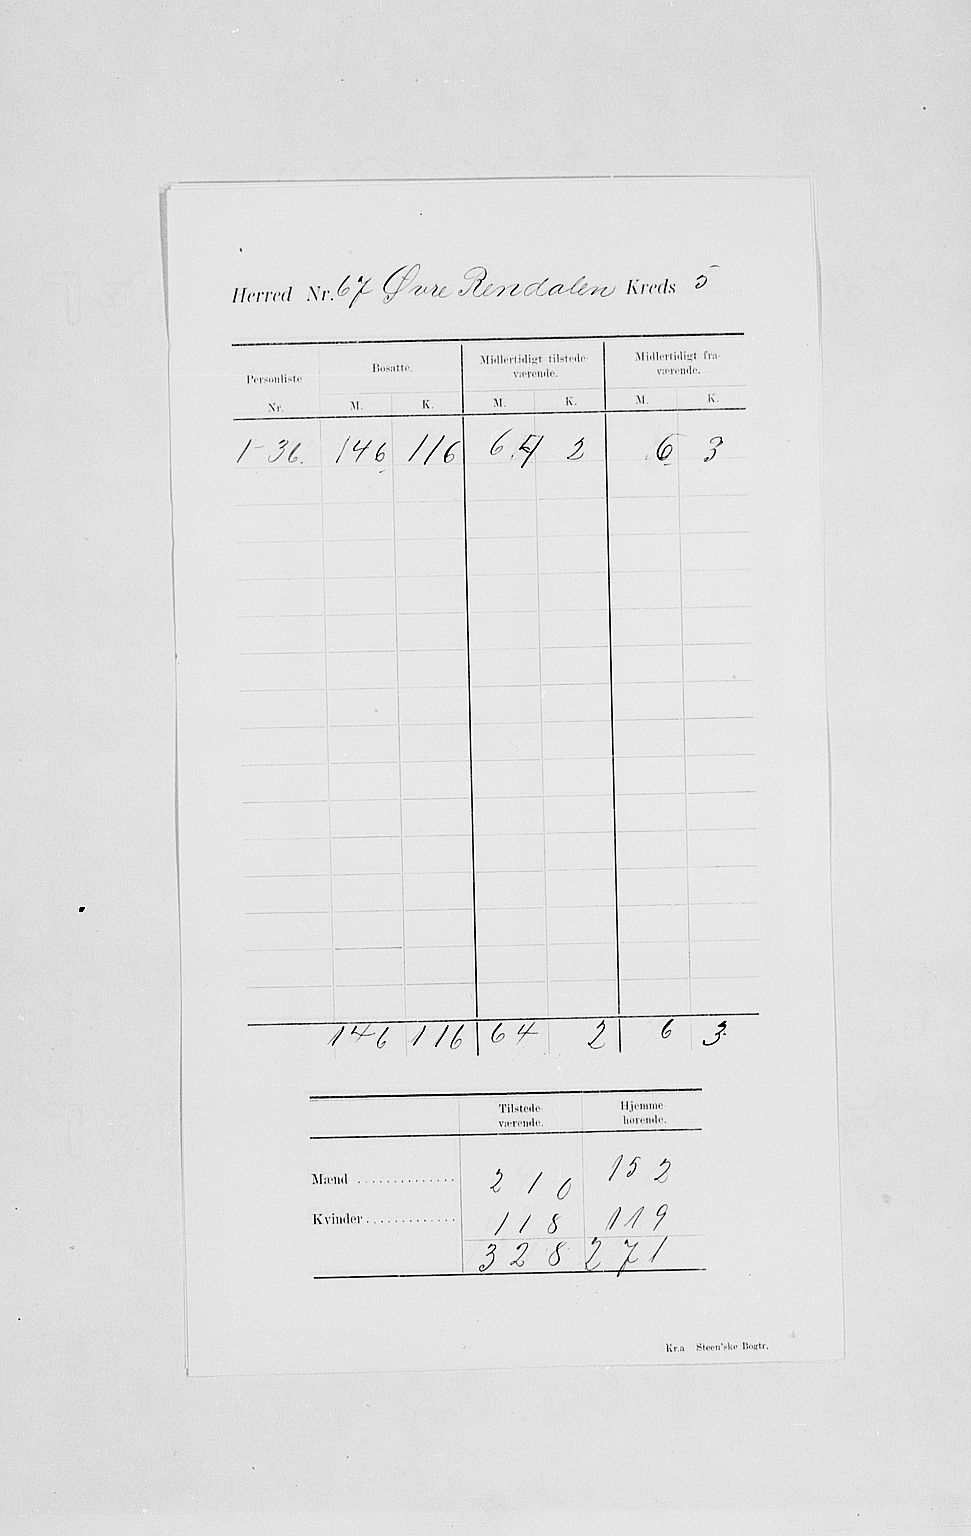 Herred Nr. 67 Øvre Rendalen Kreds 5
Personliste Bosatte. Midlertidigt tilstede- Midlertidigt fra-
værende. værende.
Nr. M. K. M. K. M. K.
1-36. 146 116 64 2 6 3
146 116 64 2 6 3
Tilstede- Hjemme-
værende. hørende.
Mænd .............. 210 152
Kvinder ............. 118 119
328 271
Kr.a Steen'ske Bogtr.